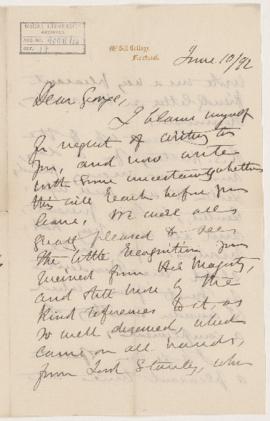 McGill College,
Montreal.
June 10/92
Dear George,
I blame myself
for neglect of writing to
you, and now write
with some uncertainty whether
this will reach before you
leave. We were all
greatly pleased to see
the little recognition you
received from Her Majesty,
and still more by the
kind references to it, as
so well deserved, which
came on all hands,
from Lord Stanley, who